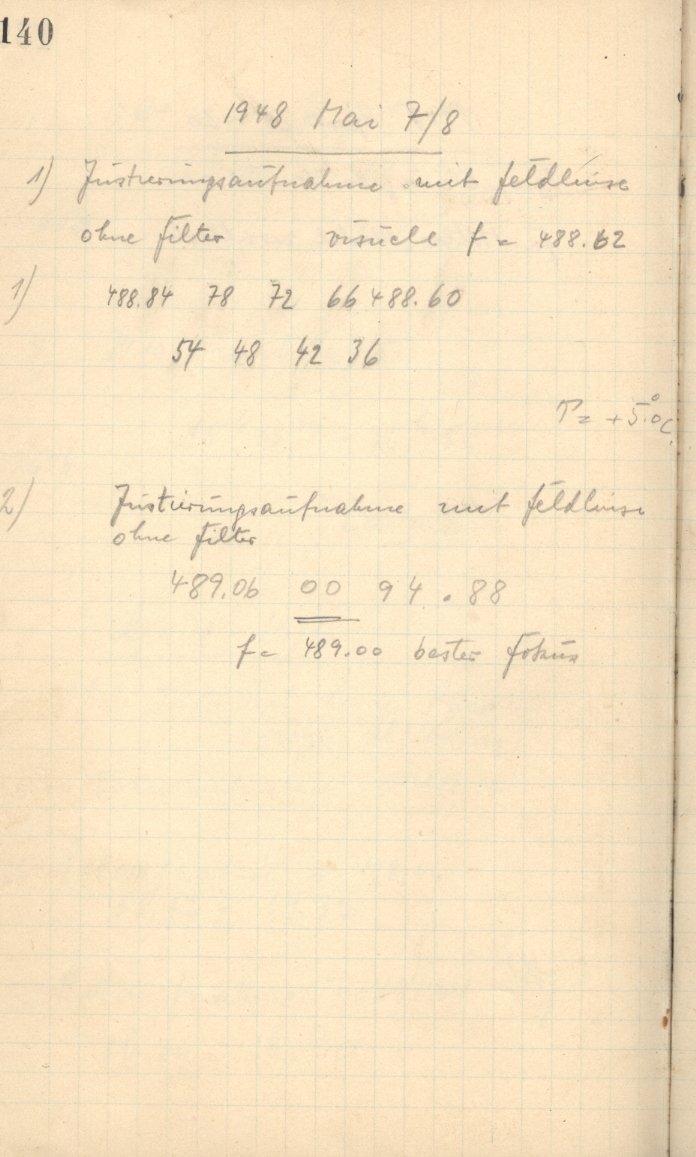 140
1948 Mai 7/8
1) Justierungsaufnahme mit Feldlinse
ohne Filter visuell f = 488.62
1) 488.84 78 72 66 488.60
54 48 42 36
T = +5.0°C.
2) Justierungsaufnahme mit Feldlinse
ohne Filter
489.06 00 94 . 88
f = 489.00 bester Fokus